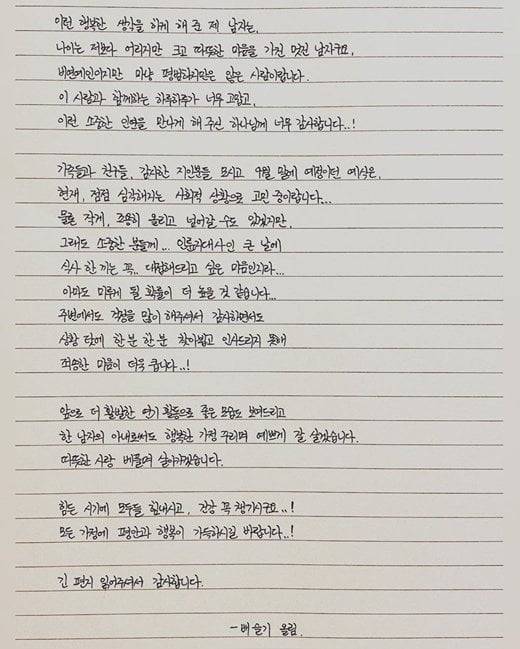 이런 행복한 생각을 하게 해 준 제 남자는,
나이는 저보다 어리지만 크고 따뜻한 마음을 가진 멋진 남자구요,
비연예인이지만 마냥 평범하지만은 않은 사람이랍니다.
이 사람과 함께하는 하루하루가 너무 고맙고,
이런 소중한 인연을 만나게 해 주신 하나님께 너무 감사합니다..!
가족들과 친구들, 감사한 지인분들 모시고 9월 말에 예정이던 예식은,
현재, 점점 심각해지는 사회적 상황으로 고민 중이랍니다...
물론 작게, 조용히 올리고 넘어갈 수도 있겠지만,
그래도 소중한 분들께... 인륜지대사인 큰 날에
식사 한 끼는 꼭.. 대접해드리고 싶은 마음인지라...
아마도 미루게 될 확률이 더 높을 것 같습니다...
주변에서도 걱정을 많이 해주셔서 감사하면서도
상황 탓에 한분 한분 찾아뵙고 인사드리지 못해
죄송한 마음이 더욱 큽니다..!
앞으로 더 활발한 연기 활동으로 좋은 모습도 보여드리고
한 남자의 아내로써도 행복한 가정 꾸리며 예쁘게 잘 살겠습니다.
따뜻한 사랑 베풀며 살아가겠습니다.
힘든 시기에 모두들 힘내시고, 건강 꼭 챙기시구요..!
모든 가정에 평안과 행복이 가득하시길 바랍니다..!
긴 편지 읽어주셔서 감사합니다.
- 배슬기 올림.